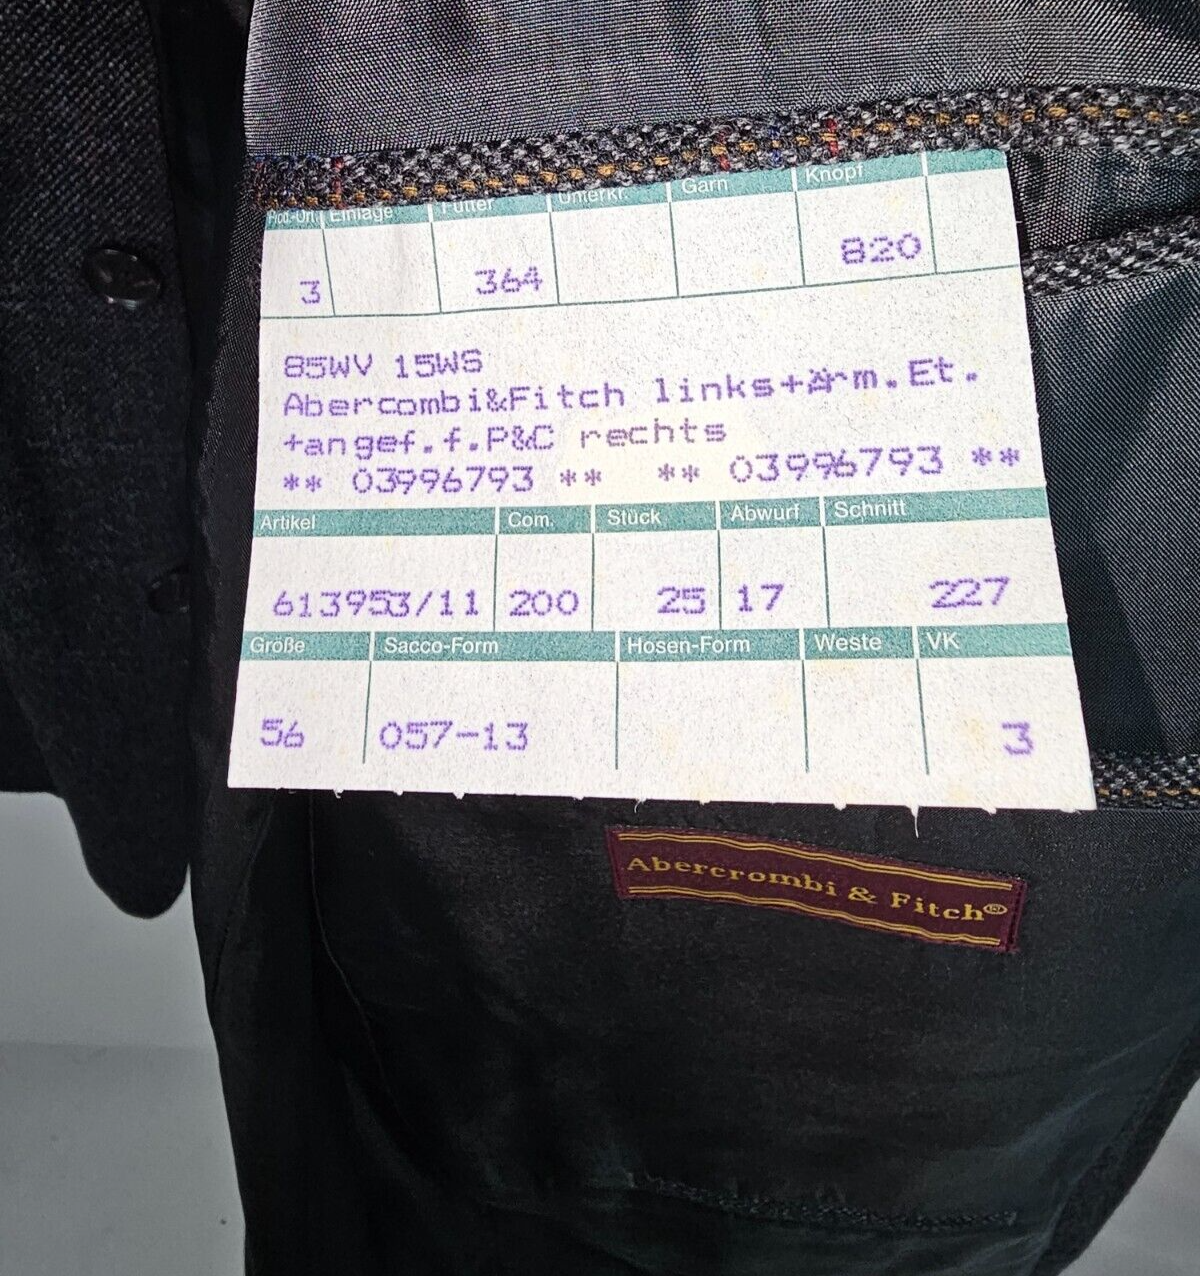 Prod.-Ort. Einlage Futter Unterkr. Garn Knopf
3 364 820
85WV 15WS
Abercombi&Fitch links+Ärm.Et.
+angef.f.P&C rechts
** 03996793 ** ** 03996793 **
Artikel Com. Stück Abwurf Schnitt
613953/11 200 25 17 227
Größe Sacco-Form Hosen-Form Weste VK
56 057-13 3
Abercrombi & Fitch®